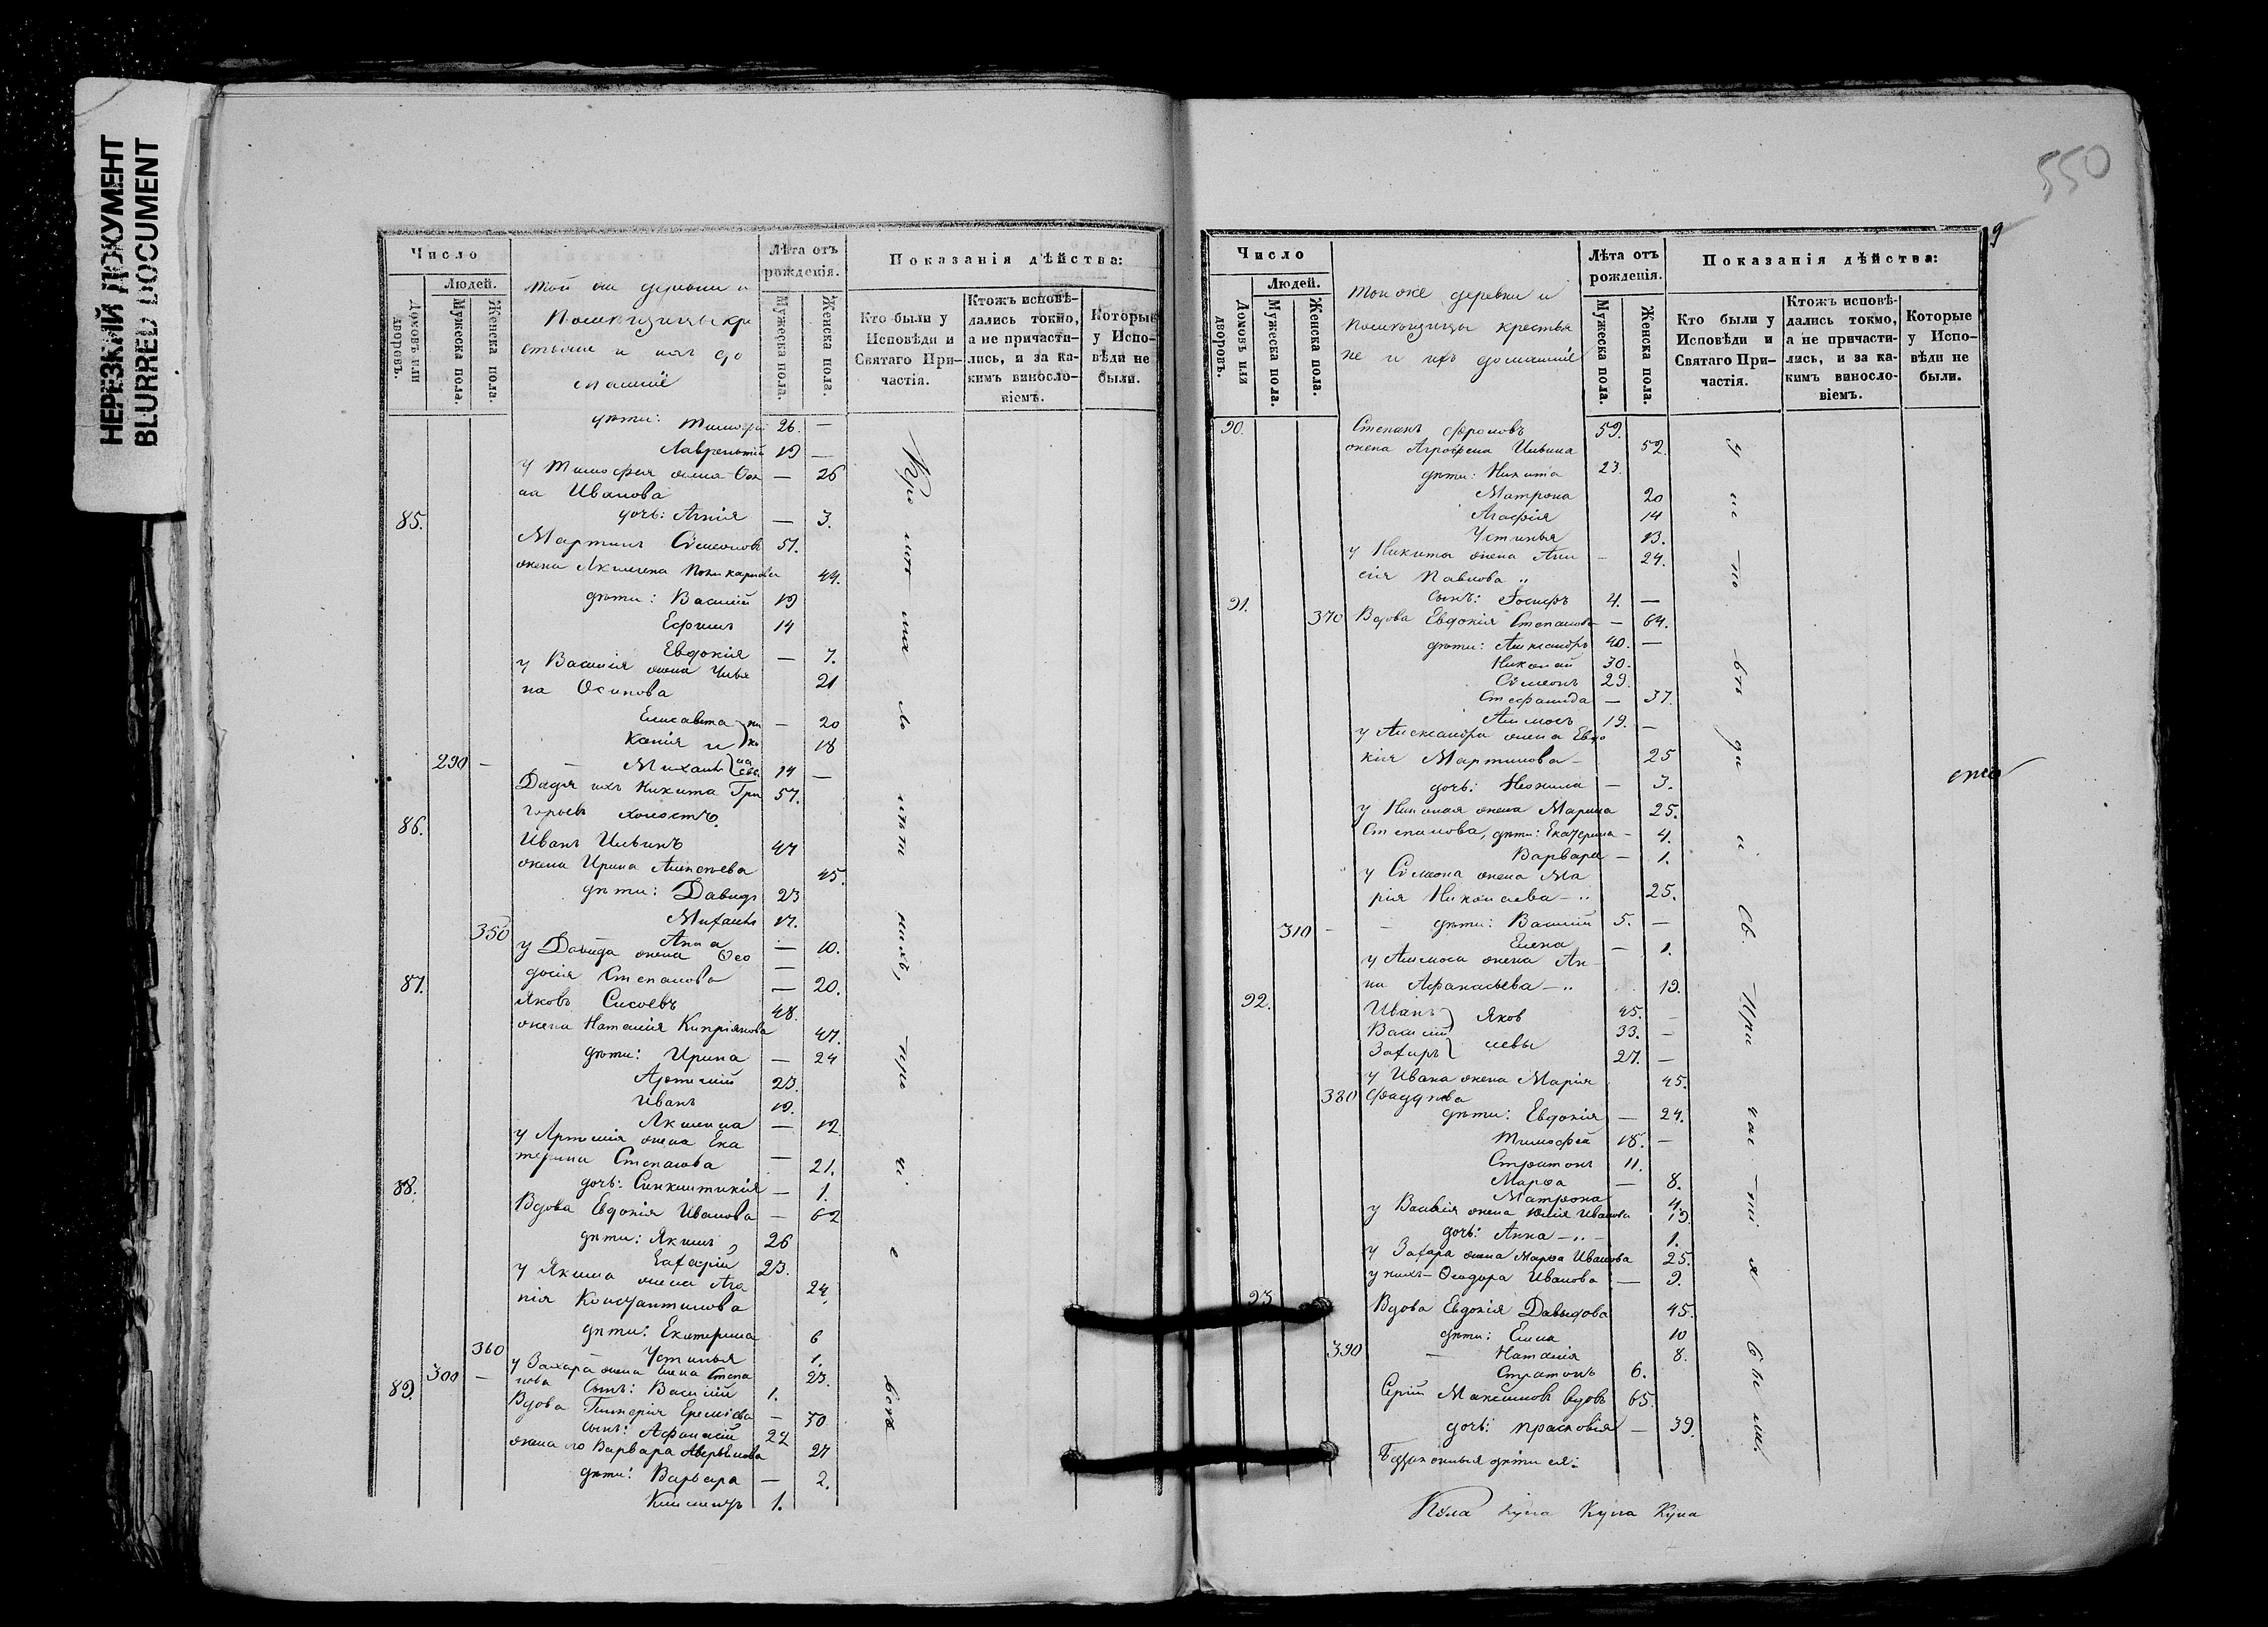 НЕРЕЗКИЙ ДОКУМЕНТ
BLURRED DOCUMENT
Число
Людей.
Домовъ или дворовъ.
Мужеска пола.
Женска пола.
Той же деревни и
Помѣщицы кре
стьяне и ихъ до
машніе
Лѣта отъ рожденія.
Мужеска пола.
Женска пола.
Показанія дѣйства:
Кто были у Исповѣди и Святаго Причастія.
Ктожъ исповѣдались токмо, а не причастились, и за какимъ винословіемъ.
Которые у Исповѣди не были.
дѣти: Тимофей 26. —
Лаврентій 19 —
у Тимофея жена
на Иванова — 26
85. дочь: Агнія — 3.
Мартинъ Сѵмеоновъ 51.
жена Акилина Поликарпова 44.
дѣти: Василій 19
Ефимъ 14
Евдокія — 7.
у Василія жена Улья
на Осипова 21
Елисавета — 20
Ксенія и 18
290 — Михаилъ 14 —
Дядя ихъ Никита Гри 57.
горьевъ холостъ.
86. Иванъ Ильинъ 47
жена Ирина Алексѣева 45.
дѣти: Давидъ 23
Михаилъ 17.
350 Анна — 10.
у Давида жена Ѳео
досія Степанова — 20.
87. Яковъ Сисоевъ 48.
жена Наталія Кипріянова 47.
дѣти: Ирина — 24
Артемій 23.
Иванъ 19.
Акилина — 12
у Артемія жена Ека
терина Степанова — 21.
дочь: Синклитикія — 1.
88. Вдова Евдокія Иванова — 62
дѣти: Якимъ 26
Захарій 23.
у Якима жена Ага
пія Константинова 24.
дѣти: Екатерина 6
360 Устинья 1.
у Захара жена Елена Степа
нова 23.
300 — сынъ: Василій 1.
89. Вдова Гликерія Еремѣева — 50
сынъ: Афанасій 22
жена его Варвара Аверьянова 27
дѣти: Варвара — 2.
Климентъ 1.
550
9
Число
Людей.
Домовъ или дворовъ.
Мужеска пола.
Женска пола.
Той же деревни и
помѣщицы крестья
не и ихъ домашніе
Лѣта отъ рожденія.
Мужеска пола.
Женска пола.
Показанія дѣйства:
Кто были у Исповѣди и Святаго Причастія.
Ктожъ исповѣдались токмо, а не причастились, и за какимъ винословіемъ.
Которые у Исповѣди не были.
90. Степанъ Фроловъ 59.
жена Агрофена Ильина 52.
дѣти: Никита 23.
Матрона 20
Агафія 14
Устинья 13.
у Никиты жена Ани — 24.
сія Павлова „
сынъ: Іосифъ 4. —
91. 370 Вдова Евдокія Степанова — 64.
дѣти: Александръ 40. —
Николай 30.
Сѵмеонъ 29.
Стефанида — 37.
Аммосъ 19. —
у Александра жена Евдо
кія Мартинова — 25
дочь: Неонила — 3.
у Николая жена Марина 25.
Степанова, дѣти: Екатерина — 4.
Варвара — 1.
у Сѵмеона жена Ма
рія Николаева — „ 25.
310 — дѣти: Василій 5. —
Елена — 1.
у Аммоса жена Ан
на Афанасьева — „ 19.
92. Иванъ Яков 45. —
Василій 33. —
Захаръ левы 27. —
у Ивана жена Марія 45.
380 Фаддѣева
дѣти: Евдокія — 24.
Тимофей 18. —
Стратонъ 11.
Марѳа — 8.
Матрона 4.
у Василія жена Юлія Иванова 19.
дочь: Анна — „ — 1.
у Захара жена Марѳа Иванова 25.
у нихъ — Ѳеодора Иванова — 9.
93 Вдова Евдокія Давыдова 45.
дѣти: Елена 10
390 — Наталія 8.
Стратонъ 6.
Сергій Максимовъ вдовъ 65.
дочь: Прасковія — 39.
у исповѣди и св. причастія были.